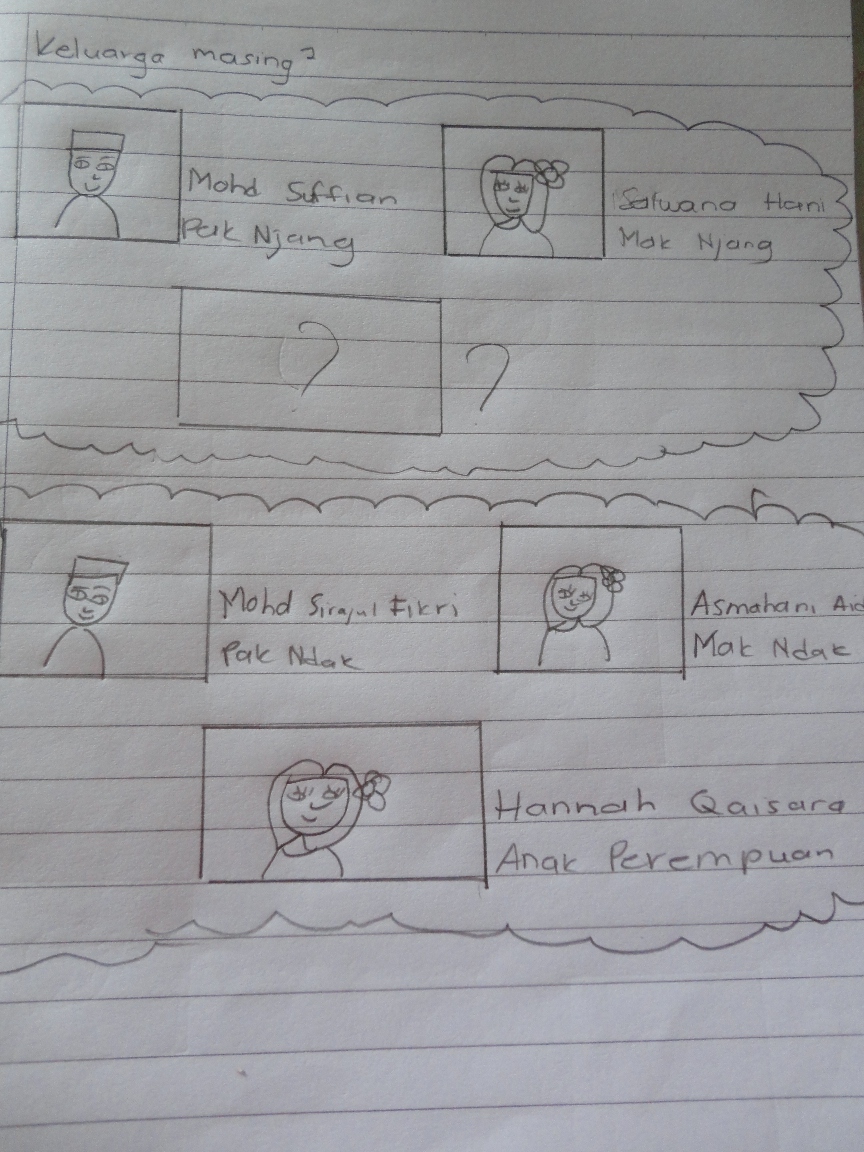 Keluarga masing²
Mohd Suffian
Pak Njang
Salwana Hani
Mak Njang
?
?
Mohd Sirajul Fikri
Pak Ndak
Asmahani Aid
Mak Ndak
Hannah Qaisara
Anak Perempuan